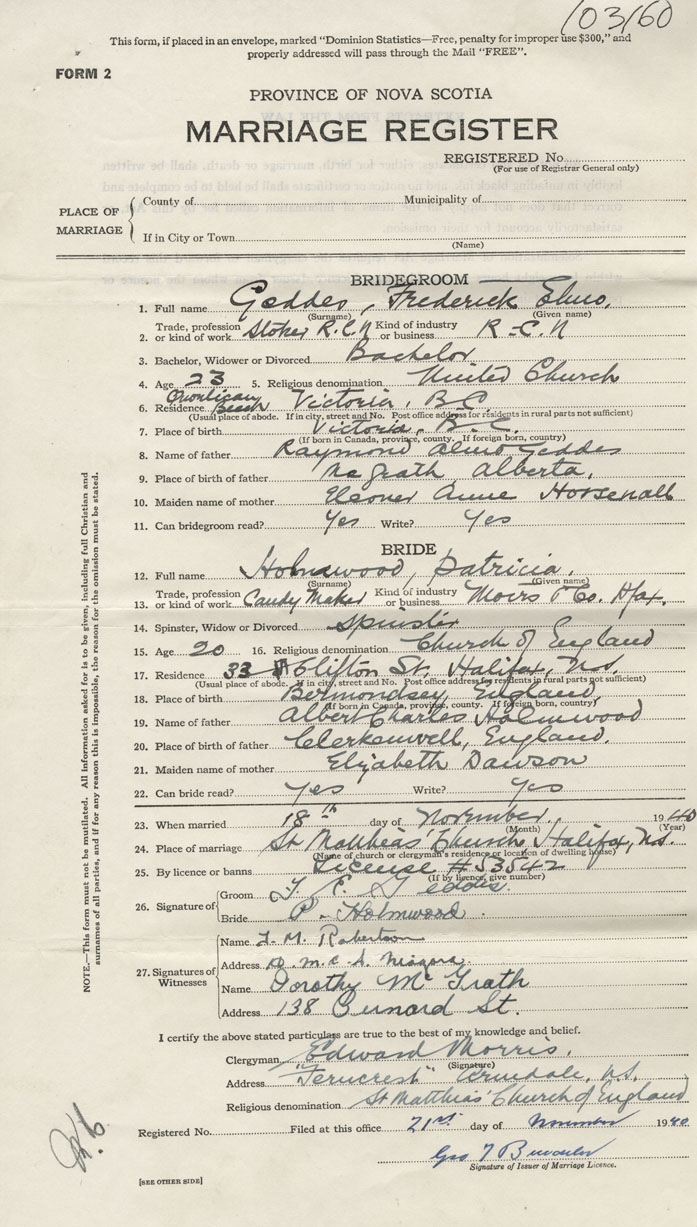 103160
This form, if placed in an envelope, marked "Dominion Statistics—Free, penalty for improper use $300," and
properly addressed will pass through the Mail "FREE".
FORM 2
PROVINCE OF NOVA SCOTIA
MARRIAGE REGISTER
REGISTERED No.
(For use of Registrar General only)
PLACE OF MARRIAGE
County of Municipality of
If in City or Town
(Name)
BRIDEGROOM
1. Full name Geddes, Frederick Elmo.
(Surname) (Given name)
2. Trade, profession or kind of work Stoker R.C.N Kind of industry or business R-C.N
3. Bachelor, Widower or Divorced Bachelor
4. Age 23 5. Religious denomination United Church
6. Residence Beach Victoria, B-C
(Usual place of abode. If in city, street and No. Post office address for residents in rural parts not sufficient)
7. Place of birth Victoria, B-C.
(If born in Canada, province, county. If foreign born, country)
8. Name of father Raymond Elmo Geddes
9. Place of birth of father McGrath Alberta.
10. Maiden name of mother Eleoner Anne
11. Can bridegroom read? Yes Write? Yes
BRIDE
12. Full name Holmwood, Patricia.
(Surname) (Given name)
13. Trade, profession or kind of work Candy Maker Kind of industry or business Moirs & Co. Hfax.
14. Spinster, Widow or Divorced Spinster
15. Age 20 16. Religious denomination Church of England
17. Residence 33 Clifton St. Halifax, N.S.
(Usual place of abode. If in city, street and No. Post office address for residents in rural parts not sufficient)
18. Place of birth Bermondsey, England,
(If born in Canada, province, county. If foreign born, country)
19. Name of father Albert Charles Holmwood
20. Place of birth of father Clerkenwell, England.
21. Maiden name of mother Elizabeth Dawson
22. Can bride read? Yes Write? Yes
23. When married 18th day of November, 1940
(Month) (Year)
24. Place of marriage St Matthias' Church, Halifax, N.S.
(Name of church or clergyman's residence or location of dwelling house)
25. By licence or banns License # 53542
(If by licence, give number)
26. Signature of
Groom F. E. Geddes.
Bride P. Holmwood.
27. Signatures of Witnesses
Name J. M. Robertson
Address H.M.C.S. Niagara.
Name Dorothy McGrath
Address 138 St.
I certify the above stated particulars are true to the best of my knowledge and belief.
Clergyman Edward Morris.
(Signature)
Address "Ferncrest" Armdale, N.S.
Religious denomination St Matthias' Church of England
Registered No. Filed at this office 21st day of November 1940
Geo T
Signature of Issuer of Marriage Licence.
[SEE OTHER SIDE]
NOTE.—This form must not be mutilated. All information asked for is to be given, including full Christian and
surnames of all parties, and if for any reason this is impossible, the reason for the omission must be stated.